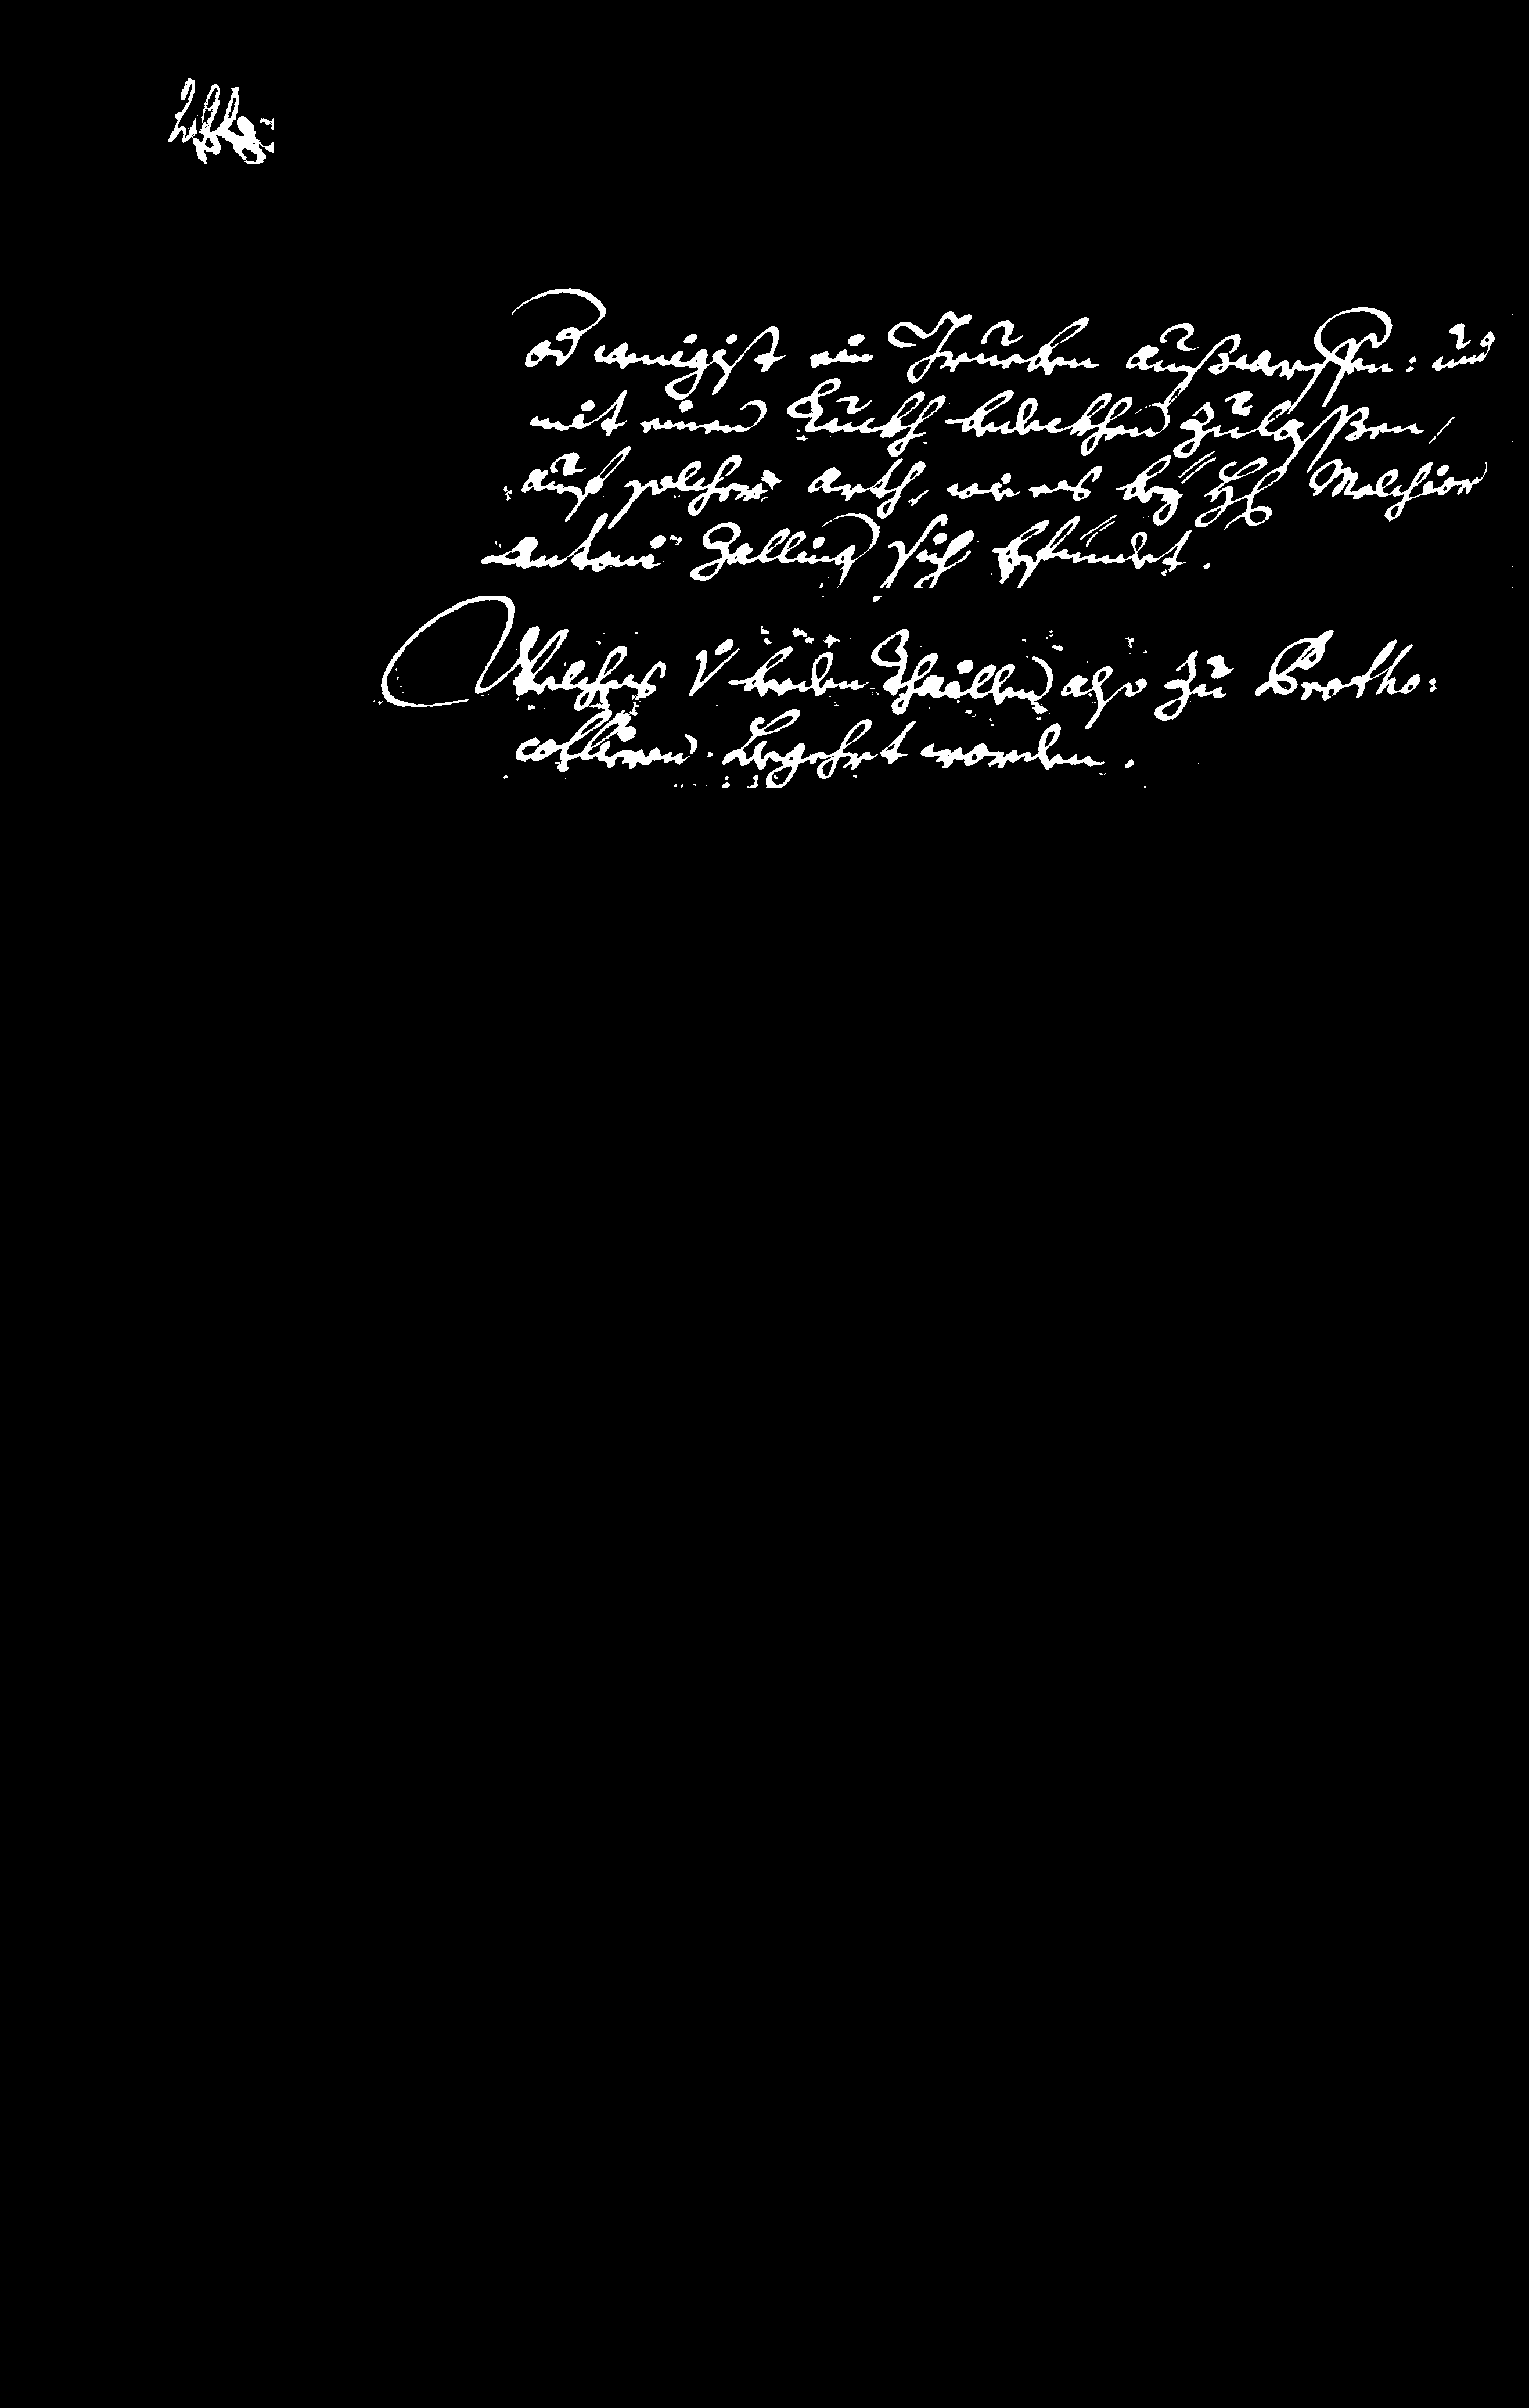 od wenigist ein Trucken außwerffen: und
mit einen Luckh bedeckhen zulassen,
auf solcher arth, wie es bey H: Melchior
Antoni Zalling sich befindet.
Welches v beeden Theillen also zu Protho:
colliren begehrt worden.